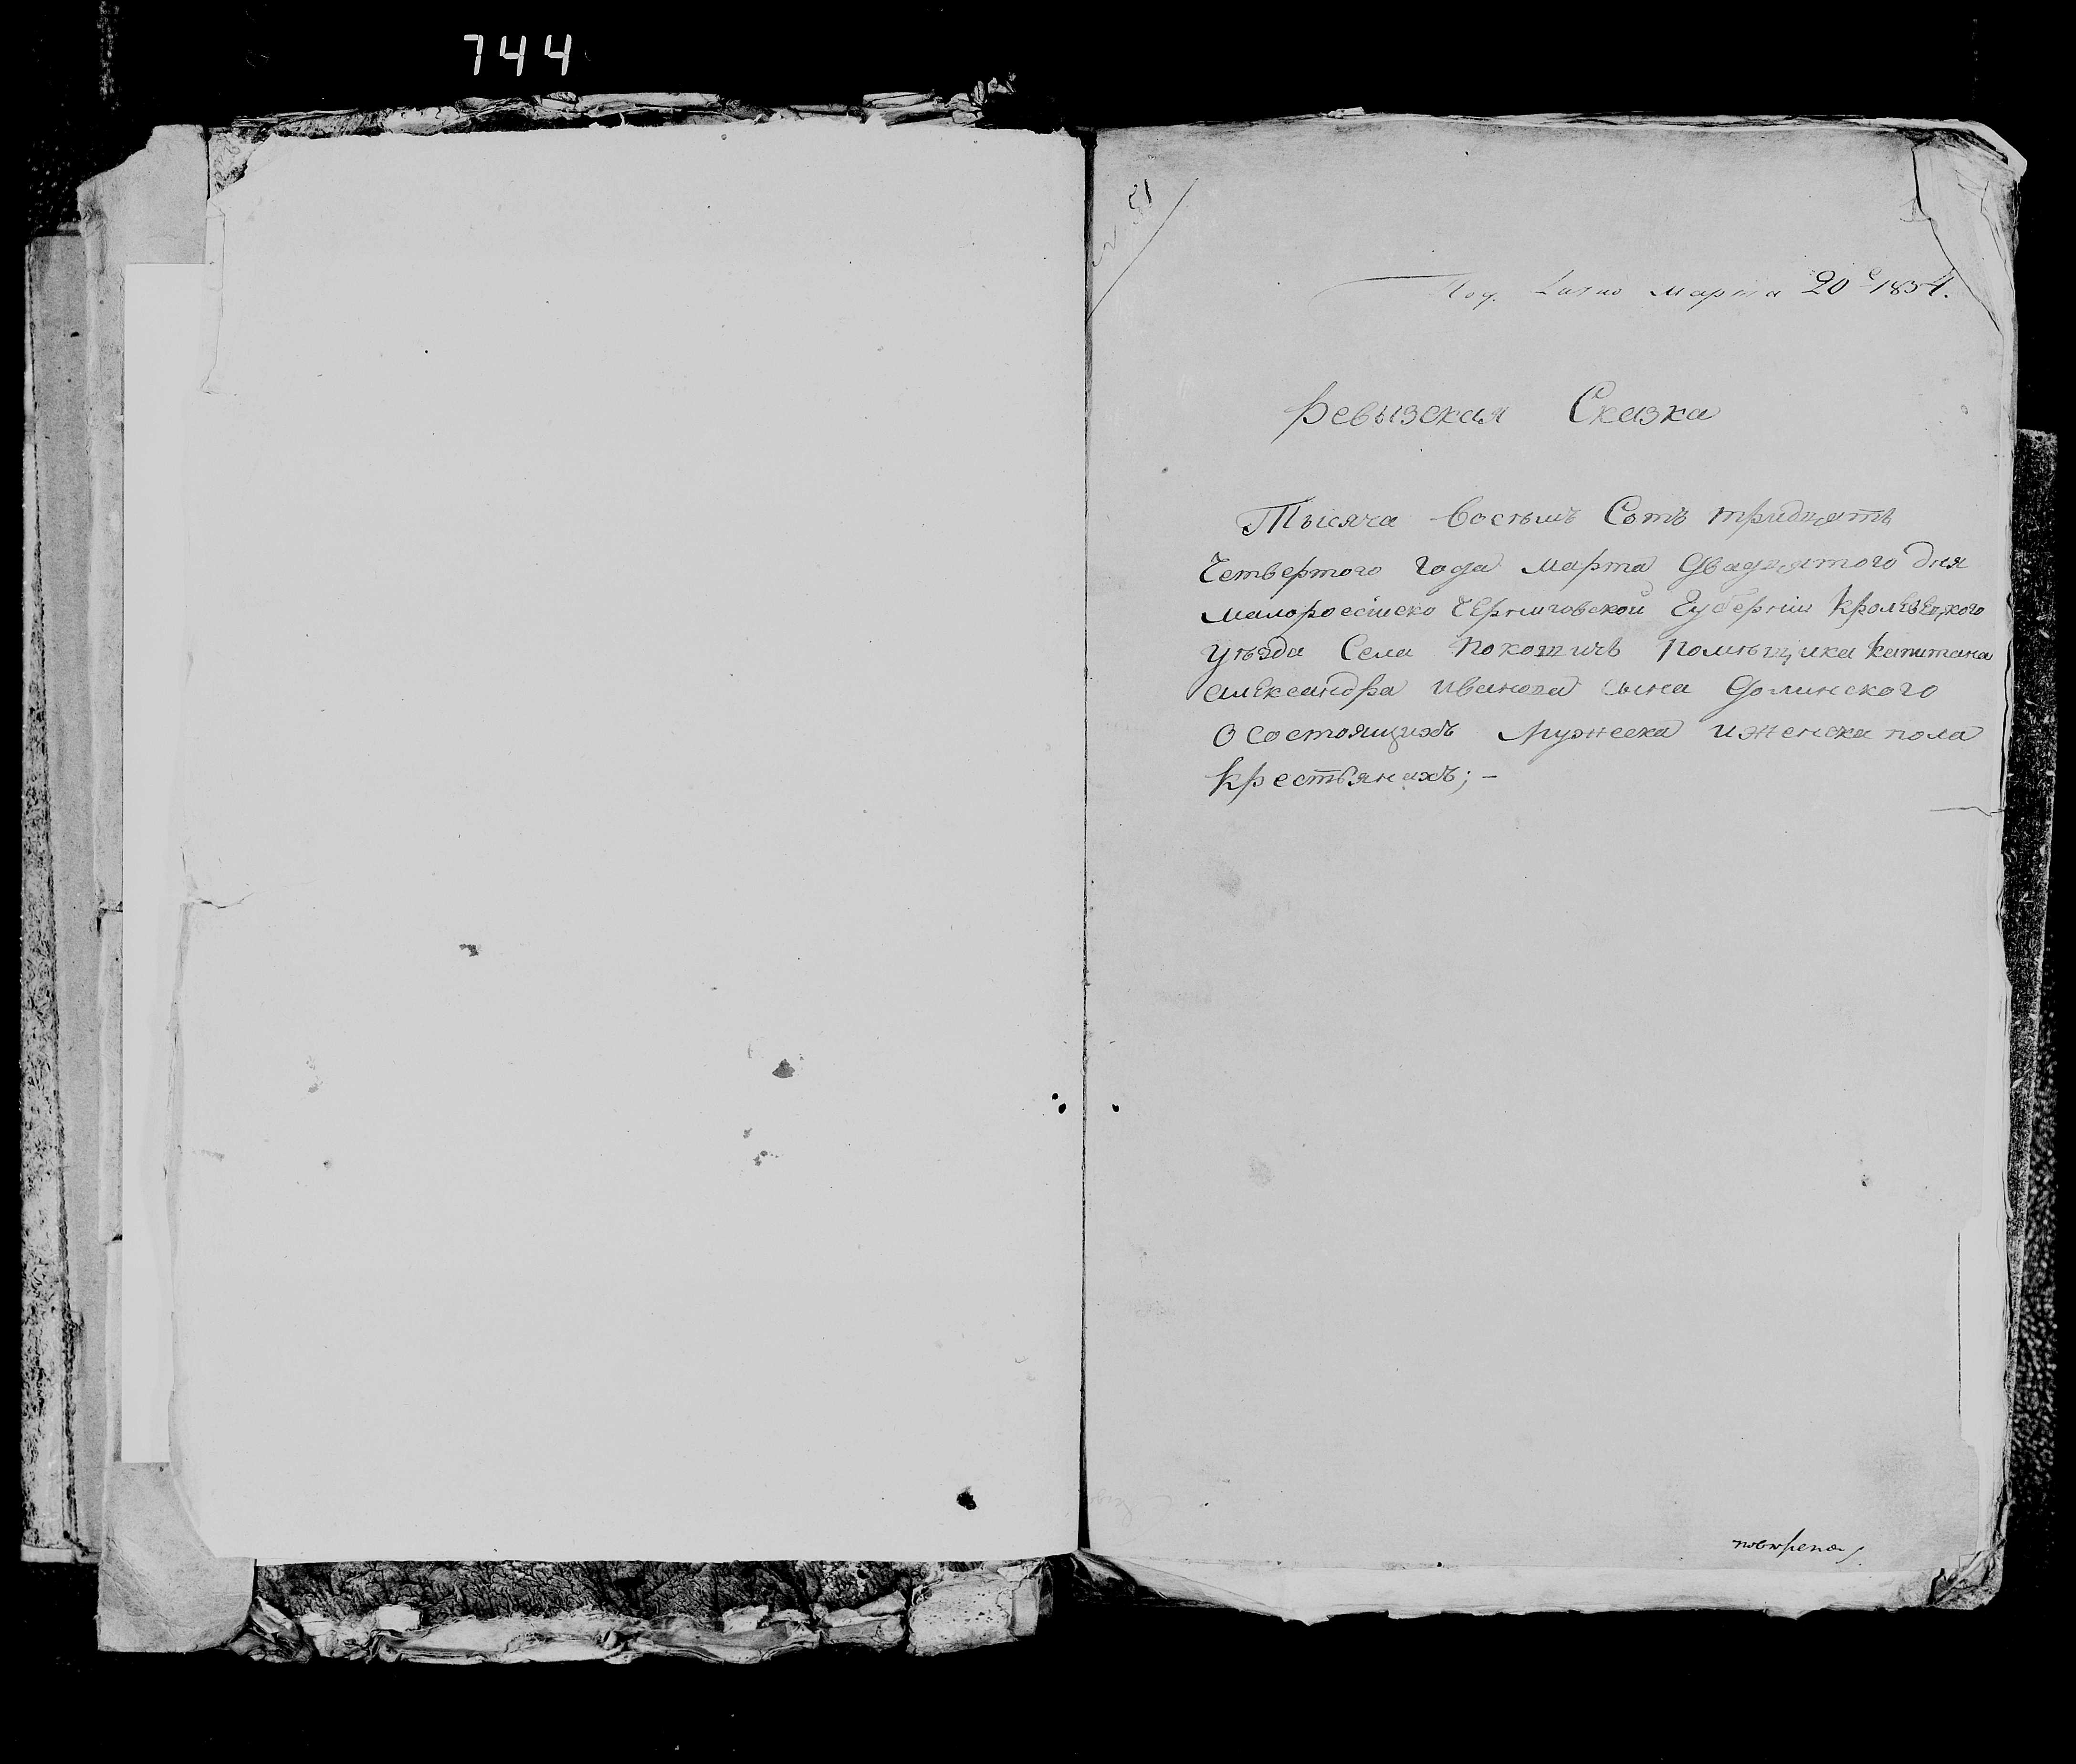 744
51
Под. Марта 20 1834.
Ревызская Сказка
Тысяча Восъмъ Сотъ тридцять
Четвертого года марта Двадцятого дня
малоросииско Черниговской Губернии Кролевецкого
Уъзда Села Покошичъ Помъщика Капитана
Александра Иванова сына Долинского
О Состоящихъ Мужеска иженска пола
Крестьянахъ; –